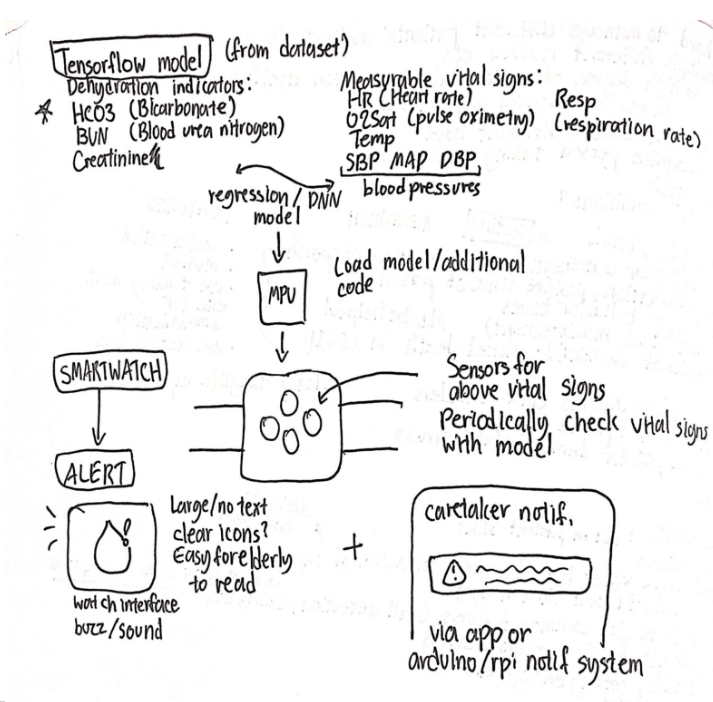 Tensorflow model (from dataset)
Dehydration indicators:
HCO3 (Bicarbonate)
BUN (Blood urea nitrogen)
Creatinine
Measurable vital signs:
HR (Heart rate)
O2Sat (pulse oximetry)
Temp
SBP MAP DBP
blood pressures
Resp
(respiration rate)
regression/DNN
model
MPU
Load model/additional
code
SMARTWATCH
ALERT
Sensors for
above vital signs
Periodically check vital signs
with model
Large/no text
clear icons?
Easy for elderly
to read
watch interface
buzz/sound
+
caretaker notif.
via app or
arduino/rpi notif system